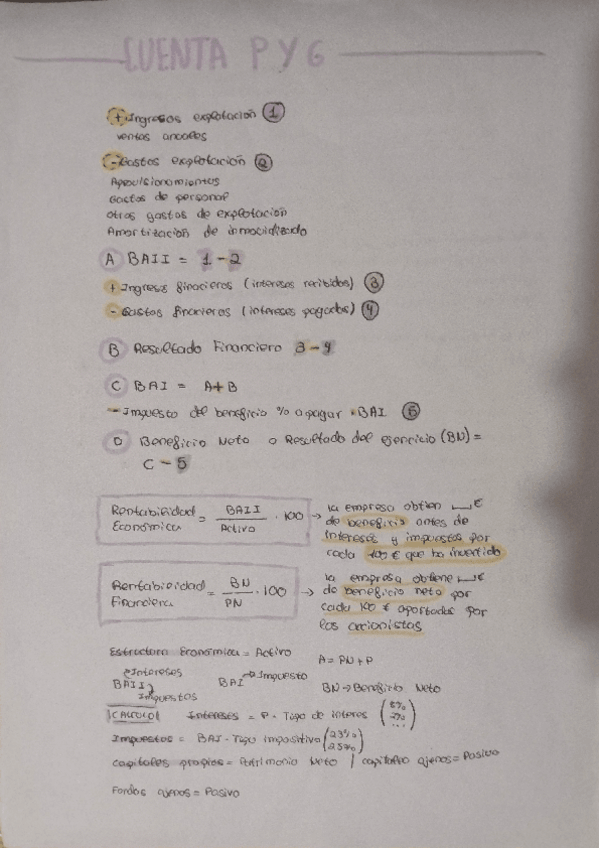 CUENTA P Y G
+ Ingresos explotación 1
ventas anuales
- Gastos explotación 2
Aprovisionamientos
Gastos de personal
otros gastos de explotación
Amortización de inmovilizado
A BAII = 1 - 2
+ Ingresos financieros (intereses recibidos) 3
- Gastos financieros (intereses pagados) 4
B Resultado Financiero 3 - 4
C BAI = A + B
- Impuesto del beneficio % a pagar · BAI 5
D Beneficio Neto o Resultado del ejercicio (BN) =
C - 5
Rentabilidad Económica = BAII / Activo · 100 → la empresa obtien __€
de beneficio antes de
intereses y impuestos por
cada 100 € que ha invertido
Rentabilidad Financiera = BN / PN · 100 → la empresa obtiene __€
de beneficio neto por
cada 100 € aportados por
los accionistas
Estructura Económica = Activo A = PN + P
BAII → Intereses → Impuestos BAI → Impuesto BN → Beneficio Neto
CALCULO Intereses = P · Tipo de interes
Impuestos = BAI · Tipo impositivo
capitales propios = Patrimonio Neto / capitales ajenos = Pasivo
Fondos ajenos = Pasivo